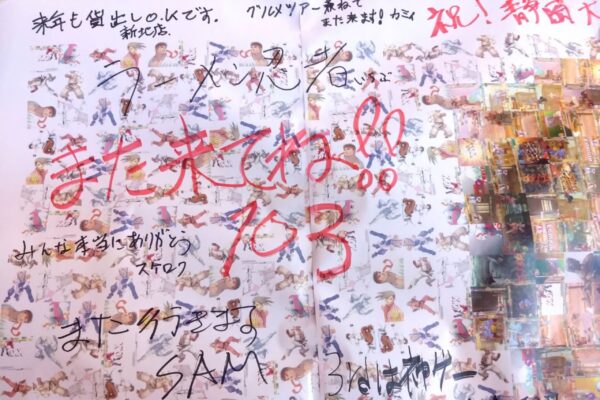 来年も貸出しO.Kです。
新北店.
グルメツアー兼ねて
また来ます! カミィ
祝!静岡大
ラーメン忍者
また来てね!!
703
みんな本当にありがとう
スケロク
また行きます
SAM
3rdは神ゲー